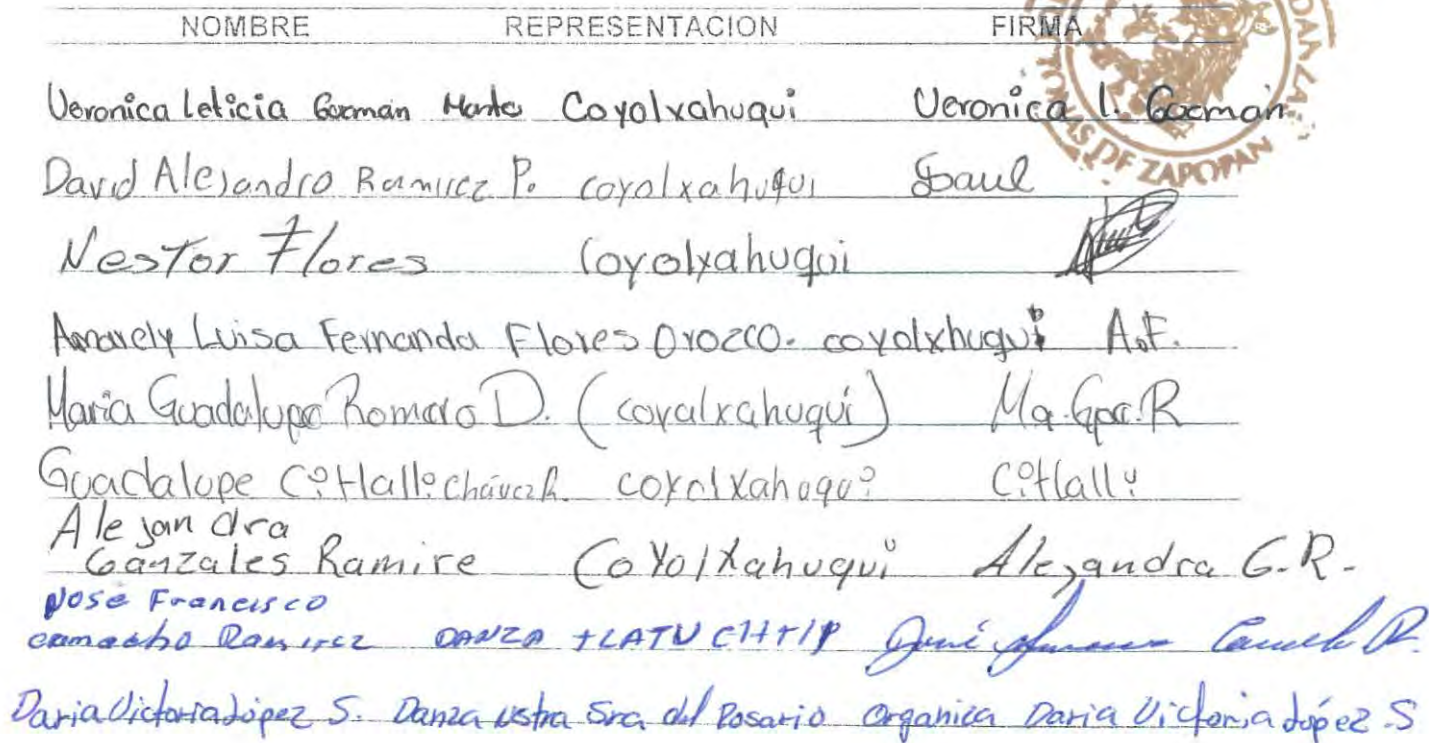 NOMBRE REPRESENTACION FIRMA
DANZA
DE ZAPOPAN
Veronica Leticia Guzman Coyolxahuqui Veronica l. Guzman
David Alejandro Ramirez P. coyolxahuqui
Nestor Flores Coyolxahuqui
Amarely Luisa Fernanda Flores Orozco. coyolxhuqui A.F.
Maria Guadalupe Romero D. (coyalxahuqui) Ma.Gpe.R
Guadalupe Citlalli Chávez R. coyolxahuqui Citlally
Alejandra
Ganzales Ramire Coyolxahuqui Alejandra G.R.
Jose Francisco
camacho Ramirez DANZA José
Daria Victoria López S. Danza Sra del Rosario Organica Daria Victoria López S